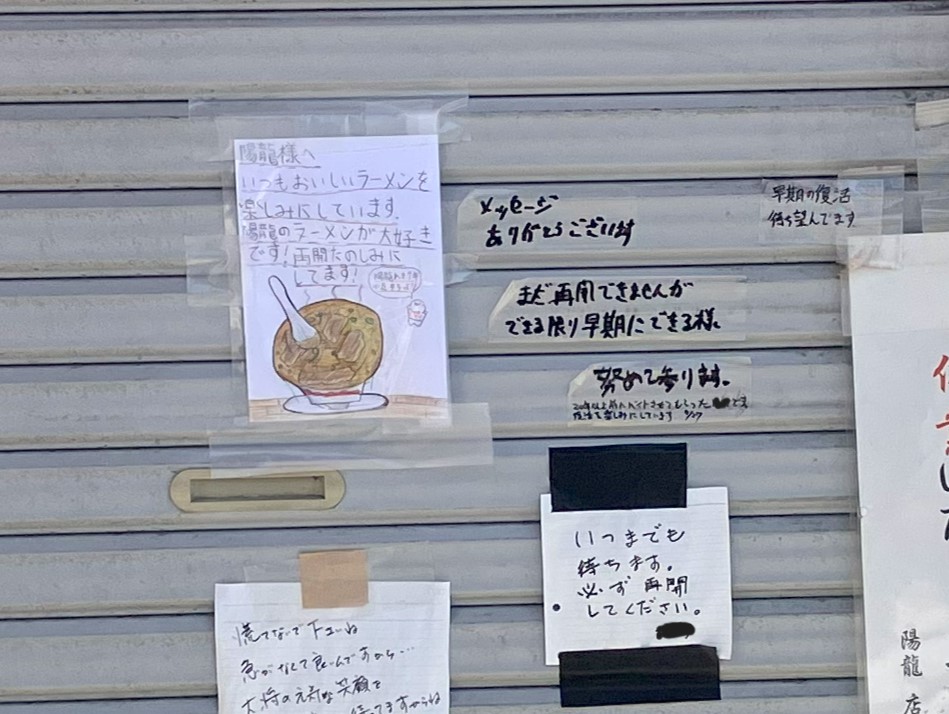 陽龍様へ
いつもおいしいラーメンを
楽しみにしています。
陽龍のラーメンが大好き
です！再開たのしみに
してます！
メッセージ
ありがとうございます
早期の復活
待ち望んでます
まだ再開できませんが
できる限り早期にできる様、
努めて参ります。
復活を楽しみにしています
いつまでも
待ちます。
必ず再開
してください。
慌てないで下さいね
急がなくて良いんですから…
大将の元気な笑顔を
待ってますからね
陽龍 店